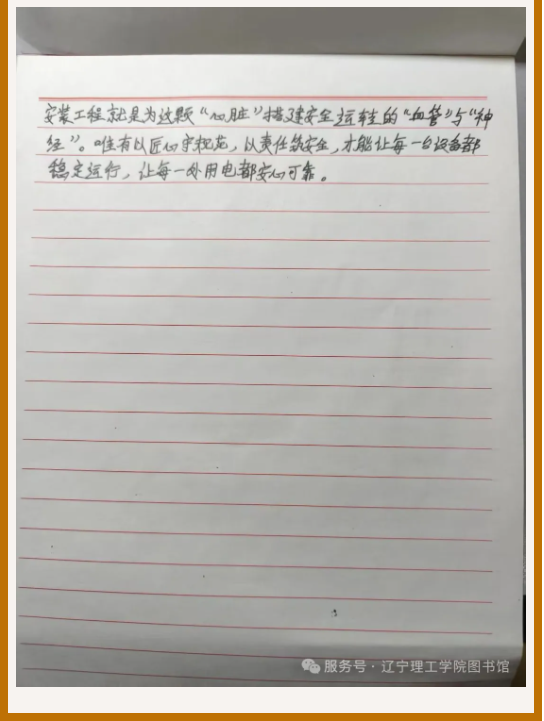 安装工程就是为这颗“心脏”搭建安全运转的“血管”与“神
经”。唯有以匠心守规范,以责任筑安全,才能让每一台设备都
稳定运行,让每一处用电都安心可靠。
服务号·辽宁理工学院图书馆